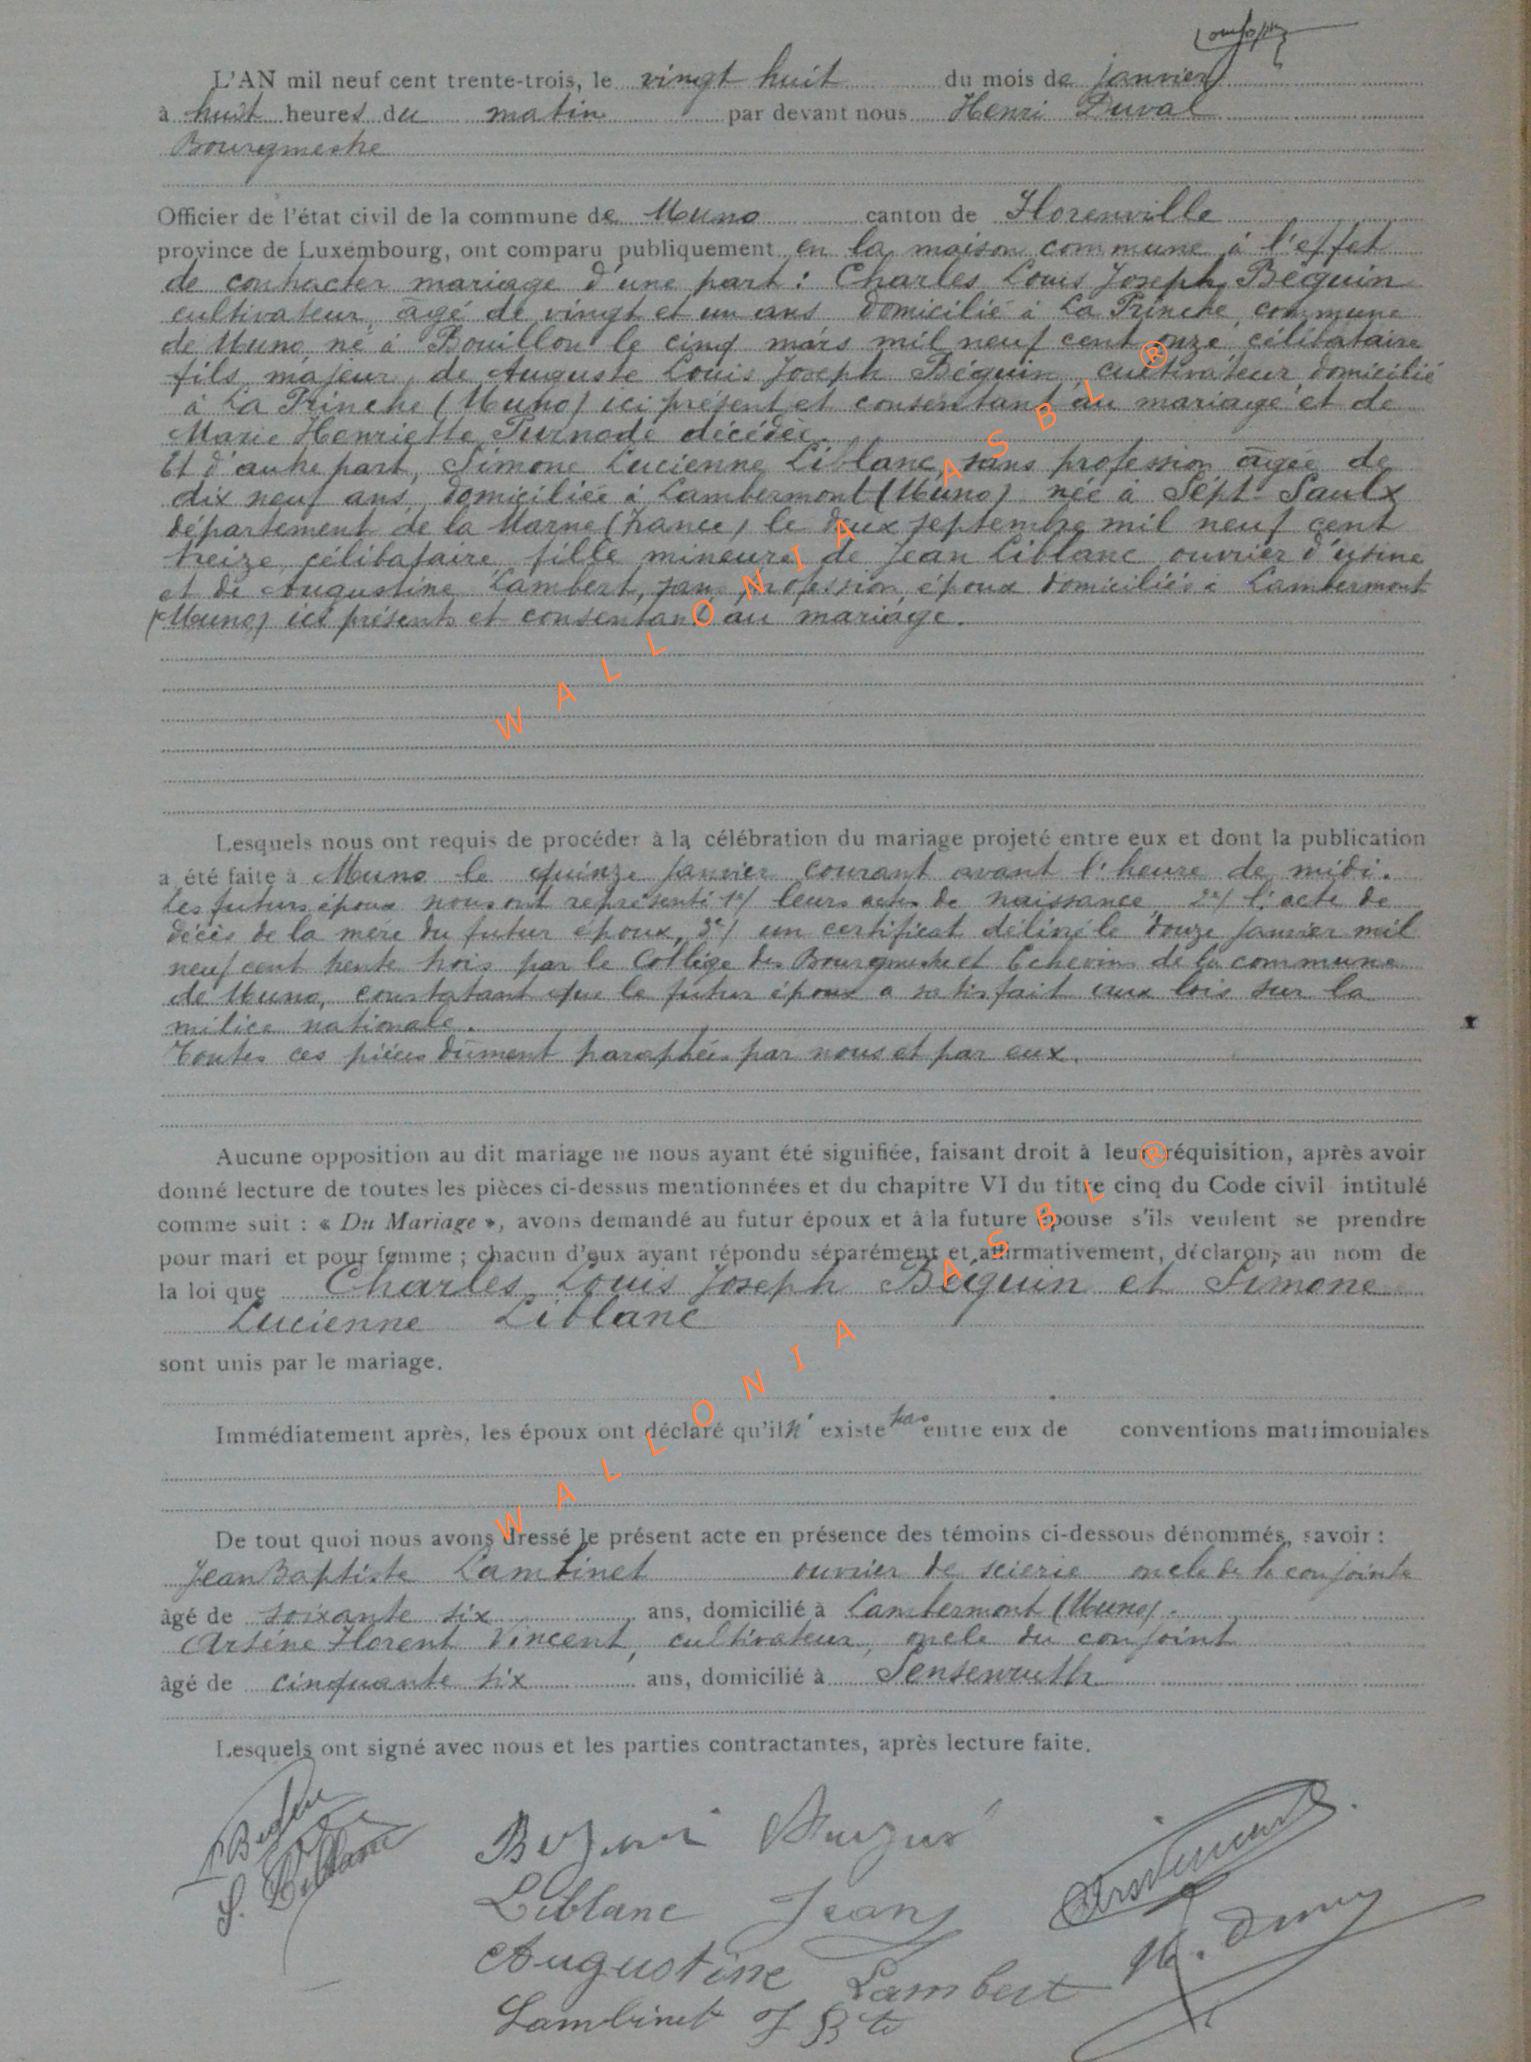 L'AN mil neuf cent trente-trois, le vingt huit du mois de janvier
à huit heures du matin par devant nous Henri Duval
Bourgmestre
Officier de l'état civil de la commune de Muno canton de Florenville
province de Luxembourg, ont comparu publiquement en la maison commune à l'effet
de contracter mariage d'une part : Charles Louis Joseph Béguin
cultivateur, âgé de vingt et un ans domicilié à La Trinche, commune
de Muno, né à Bouillon le cinq mars mil neuf cent onze, célibataire
fils majeur, de Auguste Louis Joseph Béguin, cultivateur, domicilié
à La Trinche (Muno) ici présent et consentant au mariage et de
Marie Henriette Purnode décédée.
Et d'autre part, Simone Lucienne Liblanc, sans profession âgée de
dix neuf ans, domiciliée à Lambermont (Muno) née à Sept-Saulx
département de la Marne (France) le deux septembre mil neuf cent
treize, célibataire, fille mineure de Jean Liblanc ouvrier d'usine
et de Augustine Lambert, sans profession, époux domiciliés à Lambermont
(Muno) ici présents et consentant au mariage.
Lesquels nous ont requis de procéder à la célébration du mariage projeté entre eux et dont la publication
a été faite à Muno le quinze janvier courant avant l'heure de midi.
Les futurs époux nous ont représenté 1°/ leurs actes de naissance, 2°/ l'acte de
décès de la mère du futur époux, 3°/ un certificat délivré le douze janvier mil
neuf cent trente trois par le Collège des Bourgmestre et Echevins de la commune
de Muno, constatant que le futur époux a satisfait aux lois sur la
milice nationale.
Toutes ces pièces dûment paraphées par nous et par eux.
Aucune opposition au dit mariage ne nous ayant été signifiée, faisant droit à leur réquisition, après avoir
donné lecture de toutes les pièces ci-dessus mentionnées et du chapitre VI du titre cinq du Code civil intitulé
comme suit : « Du Mariage », avons demandé au futur époux et à la future épouse s'ils veulent se prendre
pour mari et pour femme ; chacun d'eux ayant répondu séparément et affirmativement, déclarons au nom de
la loi que Charles Louis Joseph Béguin et Simone
Lucienne Liblanc
sont unis par le mariage.
Immédiatement après, les époux ont déclaré qu'il n'existe pas entre eux de conventions matrimoniales
De tout quoi nous avons dressé le présent acte en présence des témoins ci-dessous dénommés, savoir :
Jean Baptiste Lambinet ouvrier de scierie oncle de la conjointe
âgé de soixante six ans, domicilié à Lambermont (Muno).
Arsène Florent Vincent, cultivateur, oncle du conjoint
âgé de cinquante six ans, domicilié à Sensenruth
Lesquels ont signé avec nous et les parties contractantes, après lecture faite.
S. Liblanc
Liblanc Jean
Augustine Lambert
Lambinet J Bte
WALLONIA ASBL ®
WALLONIA ASBL ®